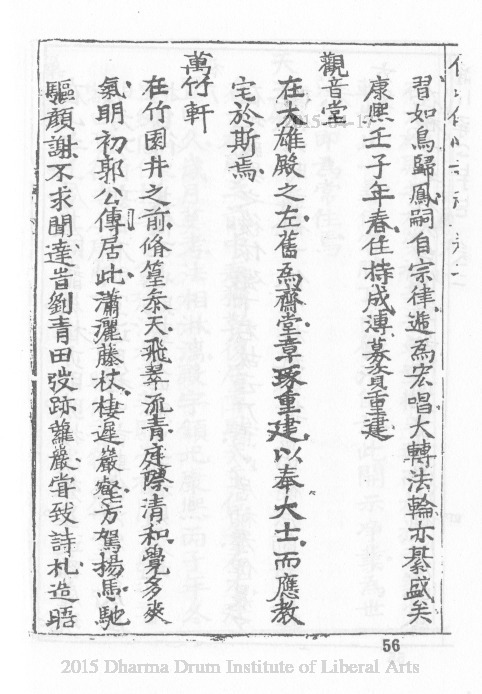 習如鳥歸鳳嗣自宗律遞為宏唱大轉法輪亦綦盛矣
康熙壬子年春住持成溥募資重建
觀音堂
在大雄殿之左舊為齋堂章琢重建以奉大士而應教
宅於斯焉
萬竹軒
在竹園井之前脩篁參天飛翠流青庭際清和覺多爽
氣明初郭公傳居此瀟灑藤杖棲遲巖壑方駕揚馬馳
驅顏謝不求聞達昔劉青田弢跡蘿巖甞致詩札造晤
56
2015 Dharma Drum Institute of Liberal Arts